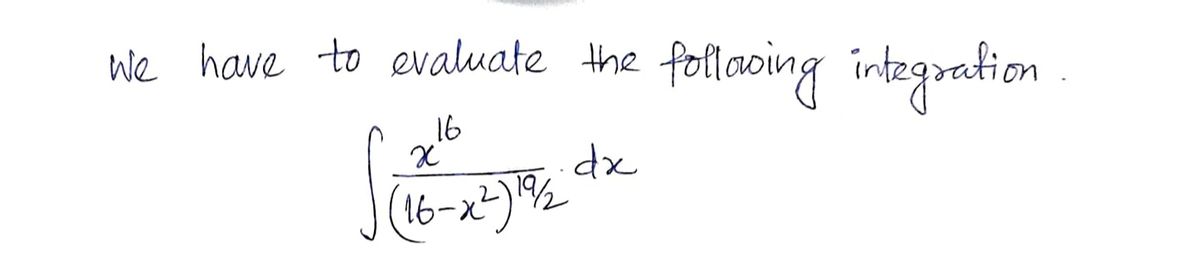 We have to evaluate the following integration.
∫ x^16 / (16-x^2)^19/2 . dx